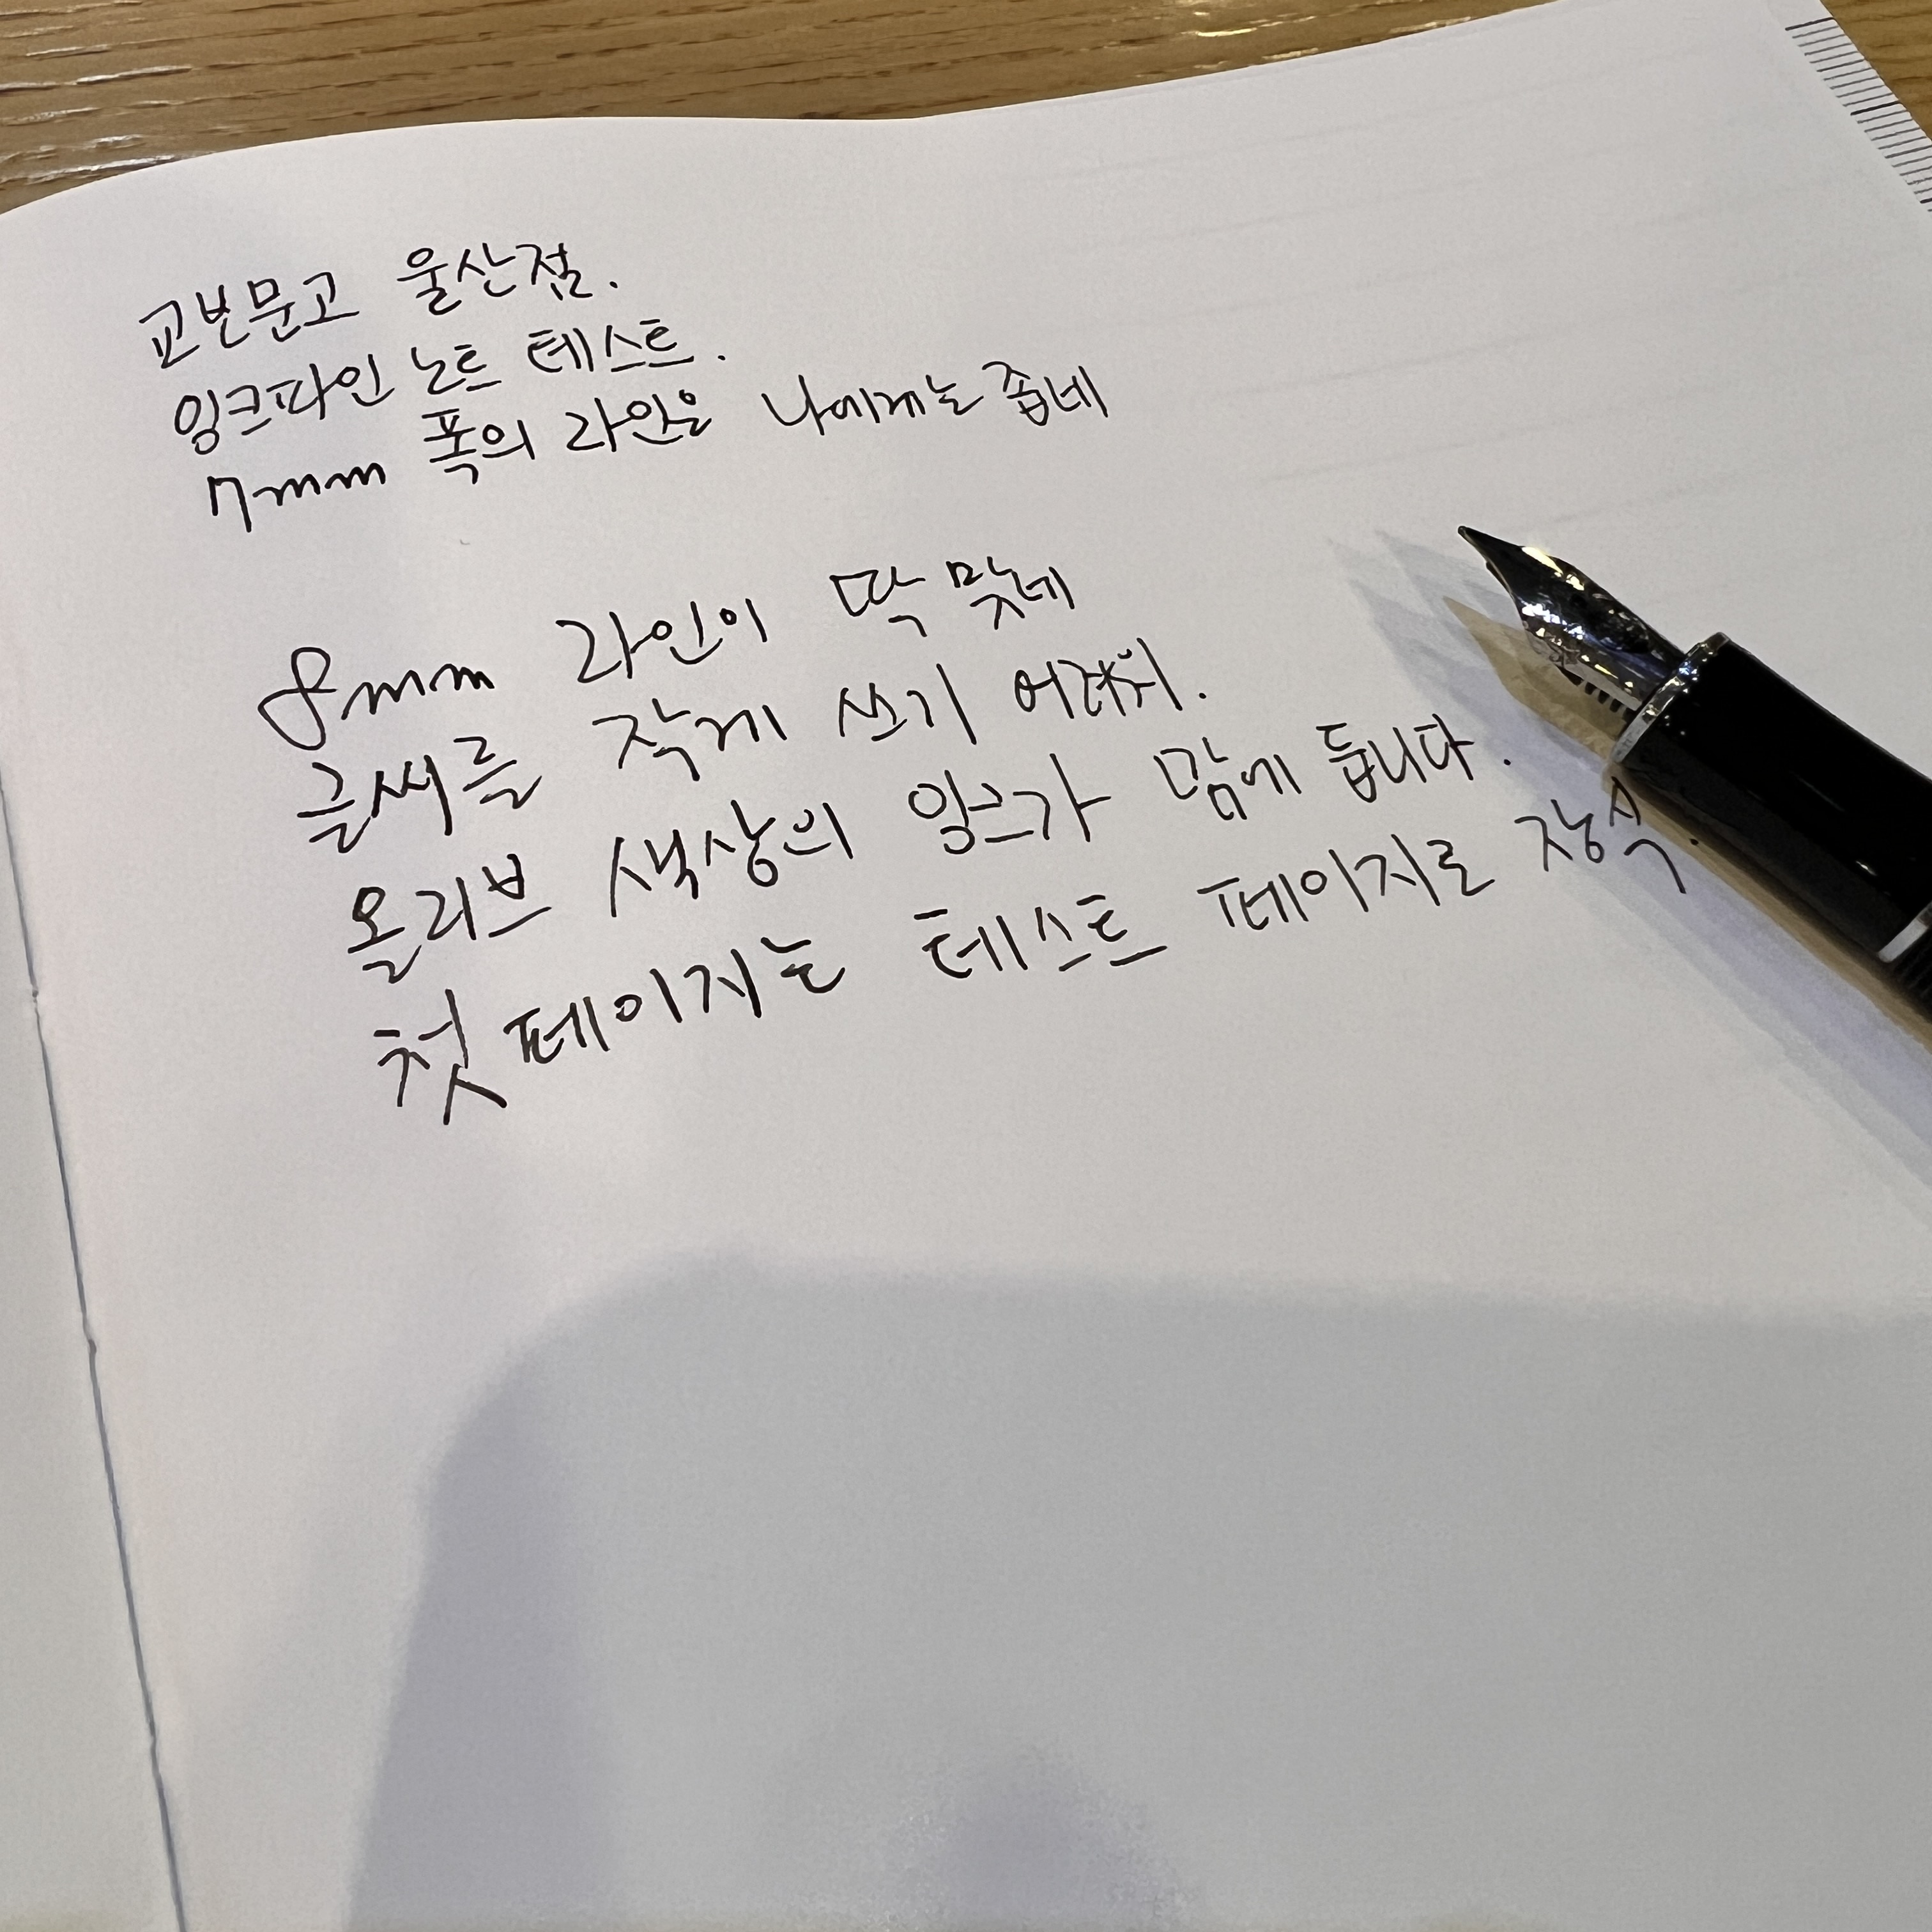 교보문고 울산점.
잉크파인 노트 테스트.
7mm 폭의 라인은 나에게는 좁네
8mm 라인이 딱 맞네
글씨를 작게 쓰기 어려워.
올리브 색상의 잉크가 맘에 듭니다.
첫 페이지는 테스트 페이지로 장식.